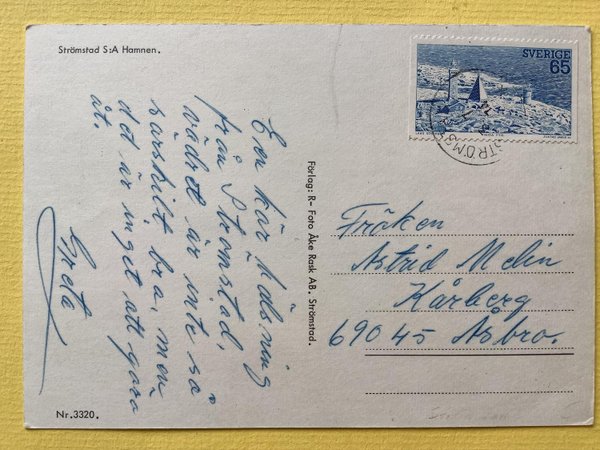 Strömstad S:A Hamnen.
En kär hälsning
från Strömstad,
vädret är inte så
särskilt bra, men
det är inget att göra
åt.
Greta
Nr.3320.
Förlag: R- Foto Åke Rask AB. Strömstad.
SVERIGE
65
STRÖMS
Fröken
Astrid Melin
Kårberg
69045 Åsbro.